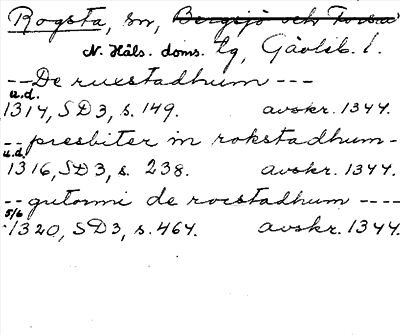 Rogsta, sn, Bergsjö och Forsa
N. Häls. doms. tg, Gävleb. l.
-- De ruxstadhum ---
u.d.
1314, SD3, s. 149. avskr. 1344.
-- presbiter in rokstadhum -
u.d.
1316, SD3, s. 238. avskr. 1344.
-- gutormi de rocstadhum ----
5/6
1320, SD3, s. 464. avskr. 1344